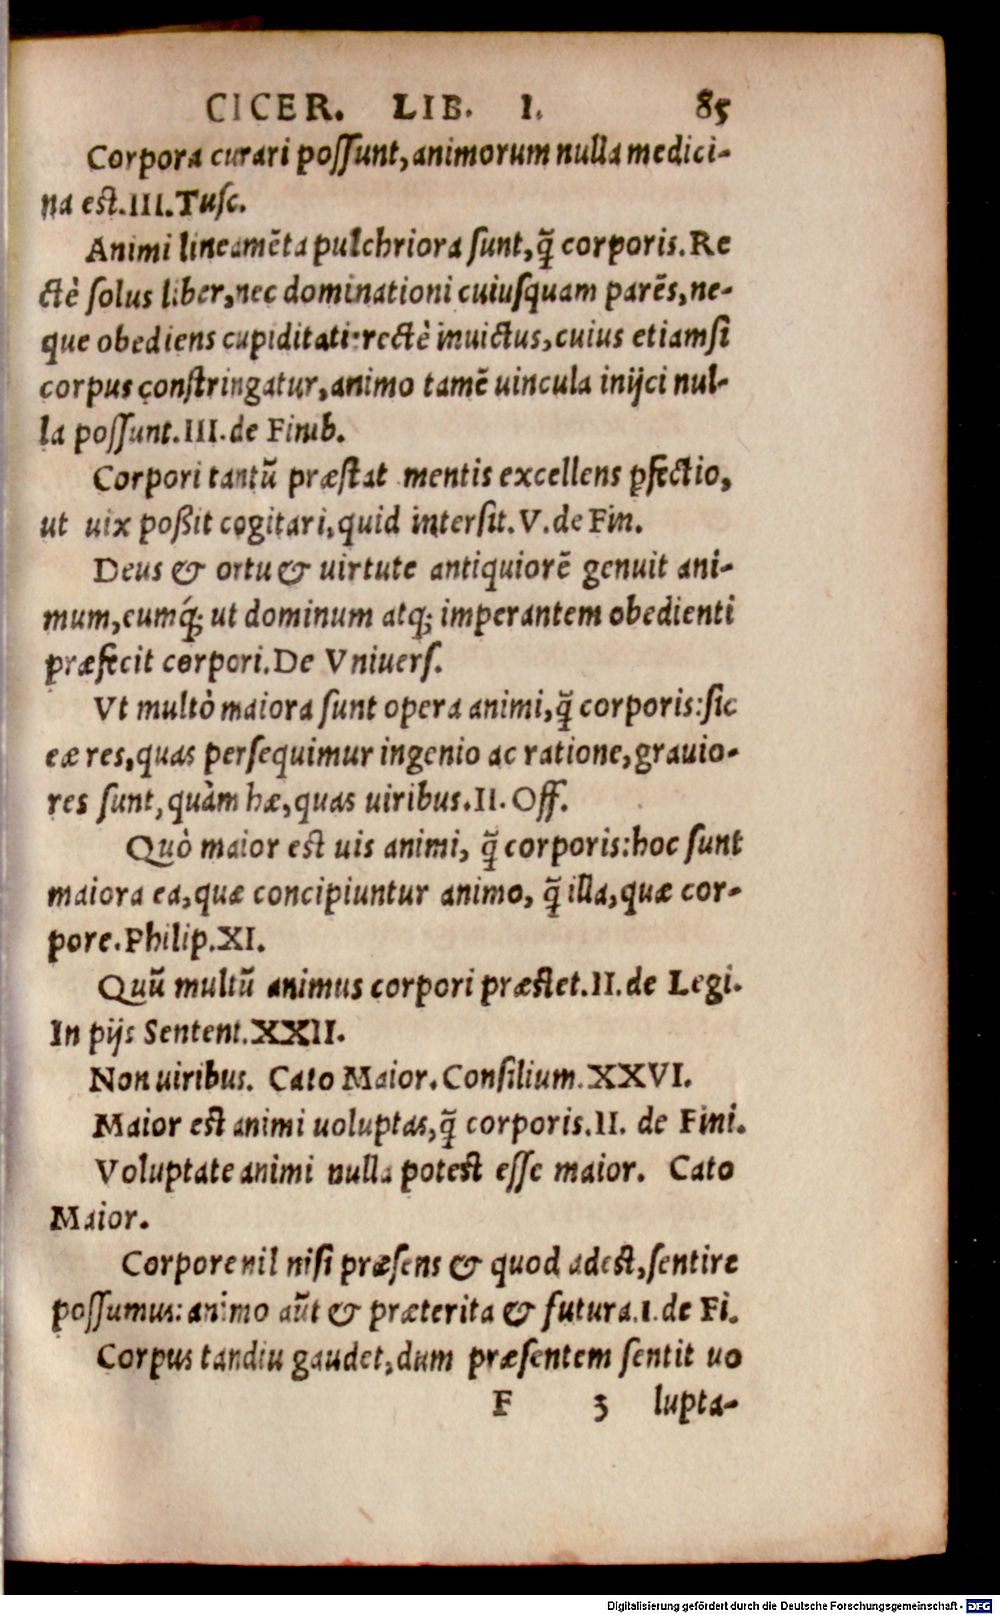 CICER. LIB. I. 85
Corpora curari possunt, animorum nulla medici-
na est. III. Tusc.
Animi lineamēta pulchriora sunt, q̃ corporis. Re
ctè solus liber, nec dominationi cuiusquam parēs, ne-
que obediens cupiditati: rectè inuictus, cuius etiamsi
corpus constringatur, animo tamē uincula inijci nul-
la possunt. III. de Finib.
Corpori tantũ præstat mentis excellens ꝑfectio,
ut uix poßit cogitari, quid intersit. V. de Fin.
Deus & ortu & uirtute antiquiorē genuit ani-
mum, eumq́; ut dominum atq; imperantem obedienti
præfecit corpori. De Vniuers.
Vt multò maiora sunt opera animi, q̃ corporis: sic
eæ res, quas persequimur ingenio ac ratione, grauio-
res sunt, quàm hæ, quas uiribus. II. Off.
Quò maior est uis animi, q̃ corporis: hoc sunt
maiora ea, quæ concipiuntur animo, q̃ illa, quæ cor-
pore. Philip. XI.
Quũ multũ animus corpori præstet. II. de Legi.
In pijs Sentent. XXII.
Non uiribus. Cato Maior. Consilium. XXVI.
Maior est animi uoluptas, q̃ corporis. II. de Fini.
Voluptate animi nulla potest esse maior. Cato
Maior.
Corpore nil nisi præsens & quod adest, sentire
possumus: animo aũt & præterita & futura. I. de Fi.
Corpus tandiu gaudet, dum præsentem sentit uo
F 3 lupta-
Digitalisierung gefördert durch die Deutsche Forschungsgemeinschaft - DFG